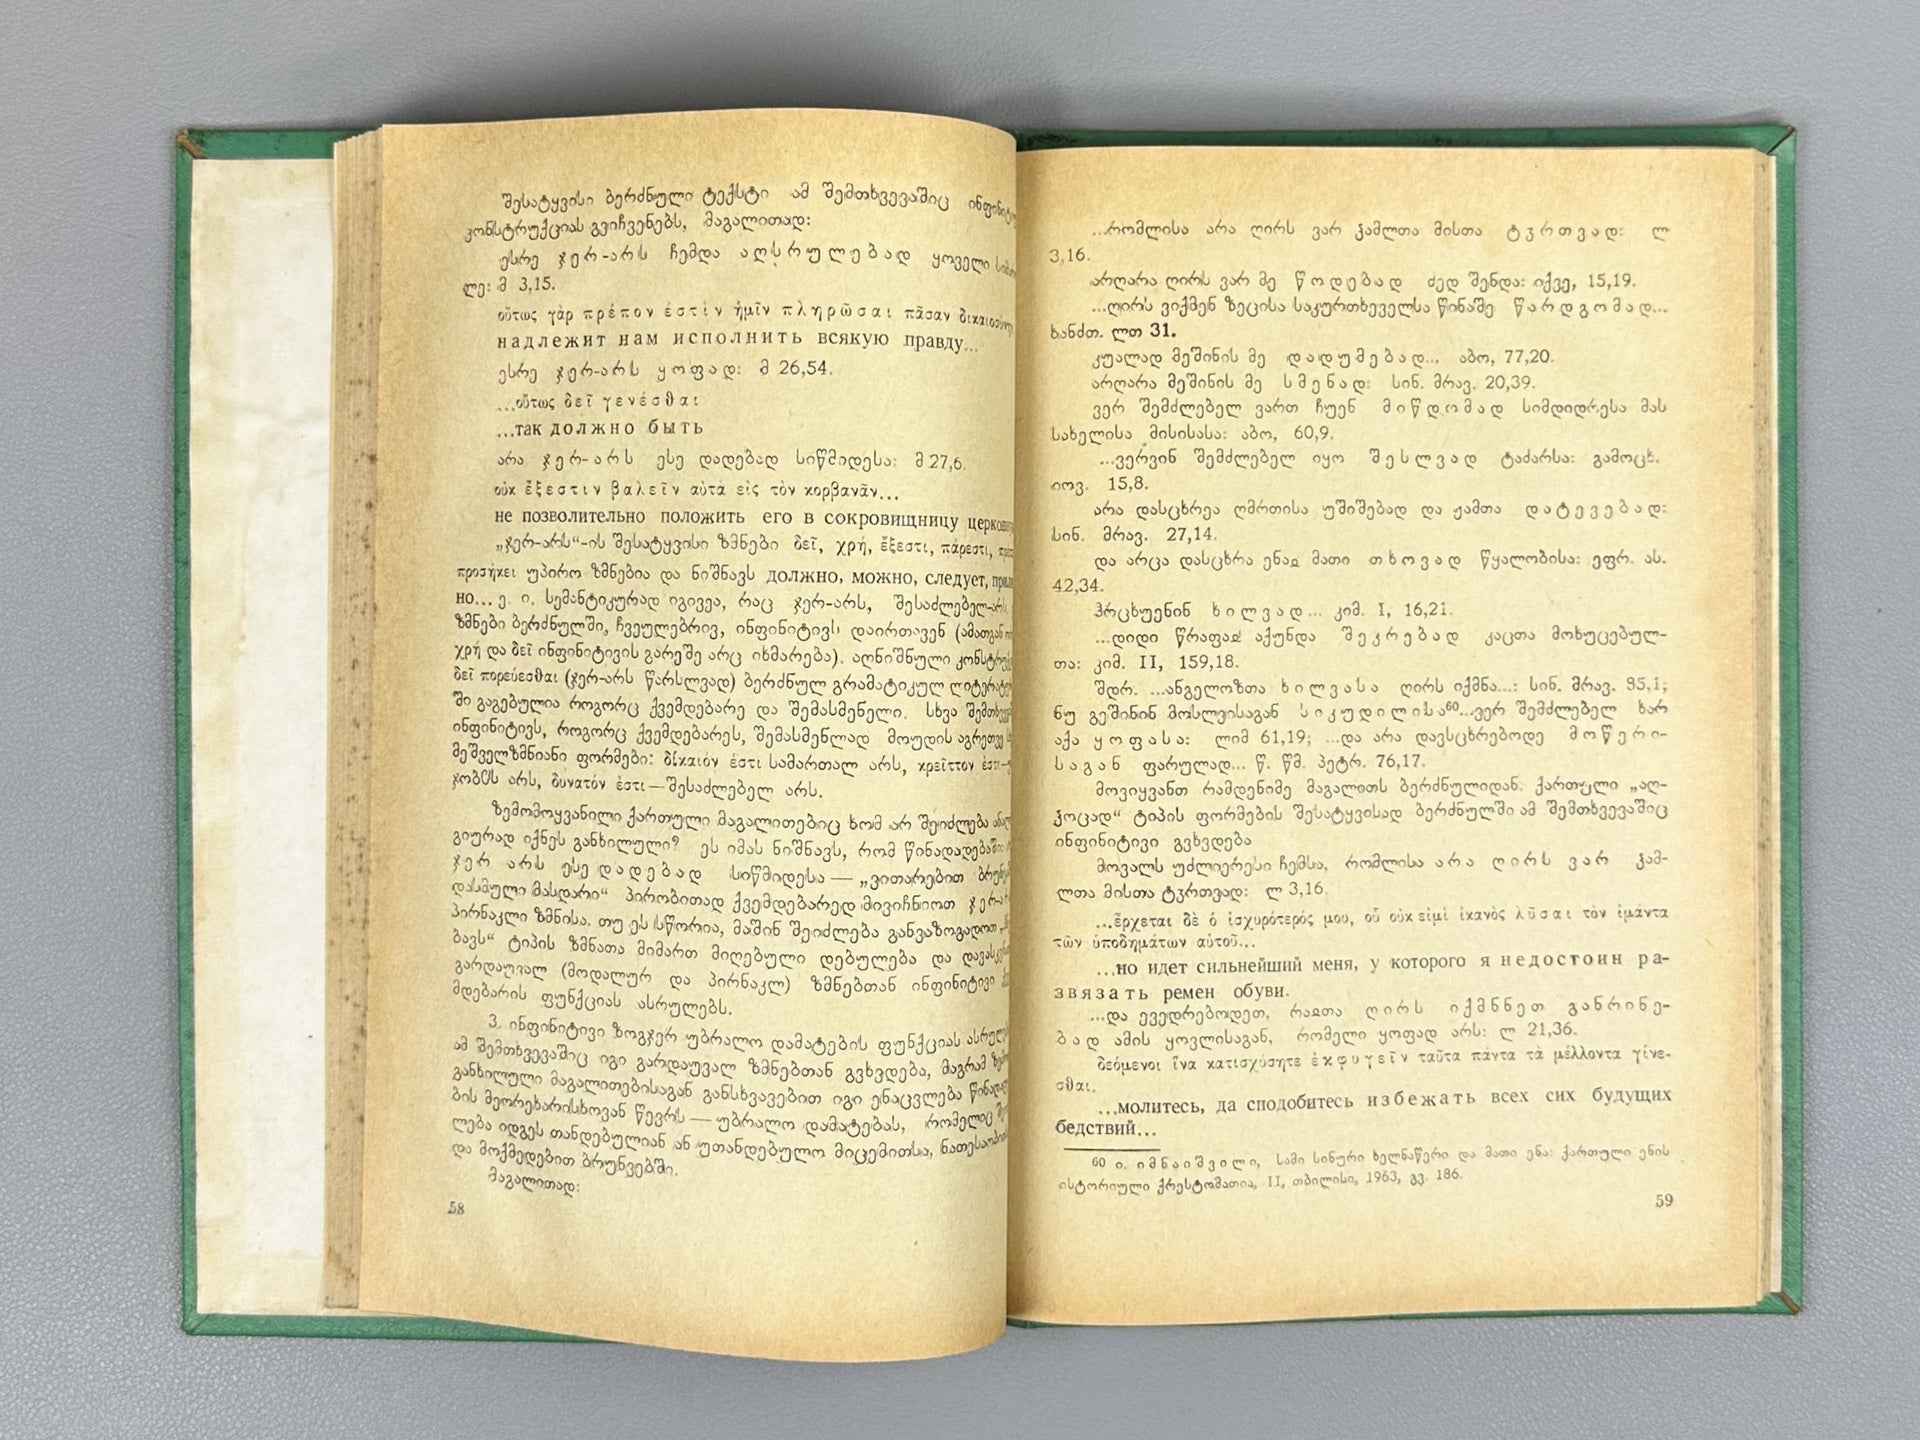 შესატყვისი ბერძნული ტექსტი ამ შემთხვევაშიც
კონსტრუქციას გვიჩვენებს, მაგალითად:
ესრე ჯერ-არს ჩემდა აღსრულებად ყოველი
ლე: მ 3,15.
οὕτως γὰρ πρέπον ἐστὶν ἡμῖν πληρῶσαι πᾶσαν
надлежит нам исполнить всякую правду...
ესრე ჯერ-არს ყოფად: მ 26,54.
...οὕτως δεῖ γενέσθαι
...так должно быть
არა ჯერ-არს ესე დადებად სიწმიდესა: მ 27,6.
οὐκ ἔξεστιν βαλεῖν αὐτὰ εἰς τὸν κορβανᾶν...
не позволительно положить его в сокровищницу
„ჯერ-არს“-ის შესატყვისი ზმნები δεῖ, χρή, ἔξεστι, πάρεστι,
προσήκει უპირო ზმნებია და ნიშნავს должно, можно, следует,
но... ე. ი. სემანტიკურად იგივეა, რაც ჯერ-არს, შესაძლებელ-არს.
ზმნები ბერძნულში, ჩვეულებრივ, ინფინიტივს დაირთავენ
χρή და δεῖ ინფინიტივის გარეშე არც იხმარება). აღნიშნული
δεῖ πορεύεσθαι (ჯერ-არს წარსლვად) ბერძნულ გრამატიკულ
ში გაგებულია როგორც ქვემდებარე და შემასმენელი. სხვა
ინფინიტივს, როგორც ქვემდებარეს, შემასმენლად მოუდის აგრეთვე
მეშველზმნიანი ფორმები: δίκαιόν ἐστι სამართალ არს, κρεῖττον ἐστι
ჯობს არს, δυνατόν ἐστι — შესაძლებელ არს.
ზემომოყვანილი ქართული მაგალითებიც ხომ არ შეიძლება
გიურად იქნეს განხილული? ეს იმას ნიშნავს, რომ წინადადებაში
ჯერ არს ესე დადებად სიწმიდესა — „ვითარებით
დასმული მასდარი“ პირობითად ქვემდებარედ მივიჩნიოთ
პირნაკლი ზმნისა. თუ ეს სწორია, მაშინ შეიძლება განვაზოგადოთ
ბავს“ ტიპის ზმნათა მიმართ მიღებული დებულება და
გარდაუვალ (მოდალურ და პირნაკლ) ზმნებთან ინფინიტივი
მდებარის ფუნქციას ასრულებს.
3. ინფინიტივი ზოგჯერ უბრალო დამატების ფუნქციას
ამ შემთხვევაშიც იგი გარდაუვალ ზმნებთან გვხვდება, მაგრამ
განხილული მაგალითებისაგან განსხვავებით იგი ენაცვლება
ბის მეორეხარისხოვან წევრს — უბრალო დამატებას, რომელიც
ლება იდგეს თანდებულიან ან უთანდებულო მიცემითსა,
და მოქმედებით ბრუნვებში.
მაგალითად:
58
...რომლისა არა ღირს ვარ ჴამლთა მისთა ტჳრთვად: ლ
3,16.
არღარა ღირს ვარ მე წოდებად ძედ შენდა: იქვე, 15,19.
...ღირს ვიქმენ ზეცისა საკურთხეველსა წინაშე წარდგომად...
ხანძთ. ლთ 31.
კუალად მეშინის მე დადუმებად... აბო, 77,20.
არღარა მეშინის მე სმენად: სინ. მრავ. 20,39.
ვერ შემძლებელ ვართ ჩუენ მიწდომად სიმდიდრესა მას
სახელისა მისისასა: აბო, 60,9.
...ვერვინ შემძლებელ იყო შესლვად ტაძარსა: გამოცხ.
იოვ. 15,8.
არა დასცხრეა ღმრთისა უშიშებად და ჟამთა დატევებად:
სინ. მრავ. 27,14.
და არცა დასცხრა ენაჲ მათი თხოვად წყალობისა: ეფრ. ას.
42,34.
ჰრცხუენინ ხილვად... კიმ. I, 16,21.
...დიდი წრაფაჲ აქუნდა შეკრებად კაცთა მოხუცებულ-
თა: კიმ. II, 159,18.
შდრ. ...ანგელოზთა ხილვასა ღირს იქმნა...: სინ. მრავ. 95,1;
ნუ გეშინინ მოსლვისაგან სიკუდილისა⁶⁰...ვერ შემძლებელ ხარ
აქა ყოფასა: ლიმ 61,19; ...და არა დავსცხრებოდე მოწერი-
საგან ფარულად... წ. წმ. პეტრ. 76,17.
მოვიყვანთ რამდენიმე მაგალითს ბერძნულიდან. ქართული „აღ-
ჴოცად“ ტიპის ფორმების შესატყვისად ბერძნულში ამ შემთხვევაშიც
ინფინიტივი გვხვდება
მოვალს უძლიერესი ჩემსა, რომლისა არა ღირს ვარ ჴამ-
ლთა მისთა ტჳრთვად: ლ 3,16.
...ἔρχεται δὲ ὁ ἰσχυρότερός μου, οὗ οὐκ εἰμὶ ἱκανὸς λῦσαι τὸν ἱμάντα
τῶν ὑποδημάτων αὐτοῦ...
...но идет сильнейший меня, у которого я недостоин ра-
звязать ремен обуви.
...და ევედრებოდეთ, რაჲთა ღირს იქმნნეთ განრინე-
ბად ამის ყოვლისაგან, რომელი ყოფად არს: ლ 21,36.
δεόμενοι ἵνα κατισχύσητε ἐκφυγεῖν ταῦτα πάντα τὰ μέλλοντα γίνε-
σθαι.
...молитесь, да сподобитесь избежать всех сих будущих
бедствий...
60 ი. იმნაიშვილი, სამი სინური ხელნაწერი და მათი ენა: ქართული ენის
ისტორიული ქრესტომათია, II, თბილისი, 1963, გვ. 186.
59